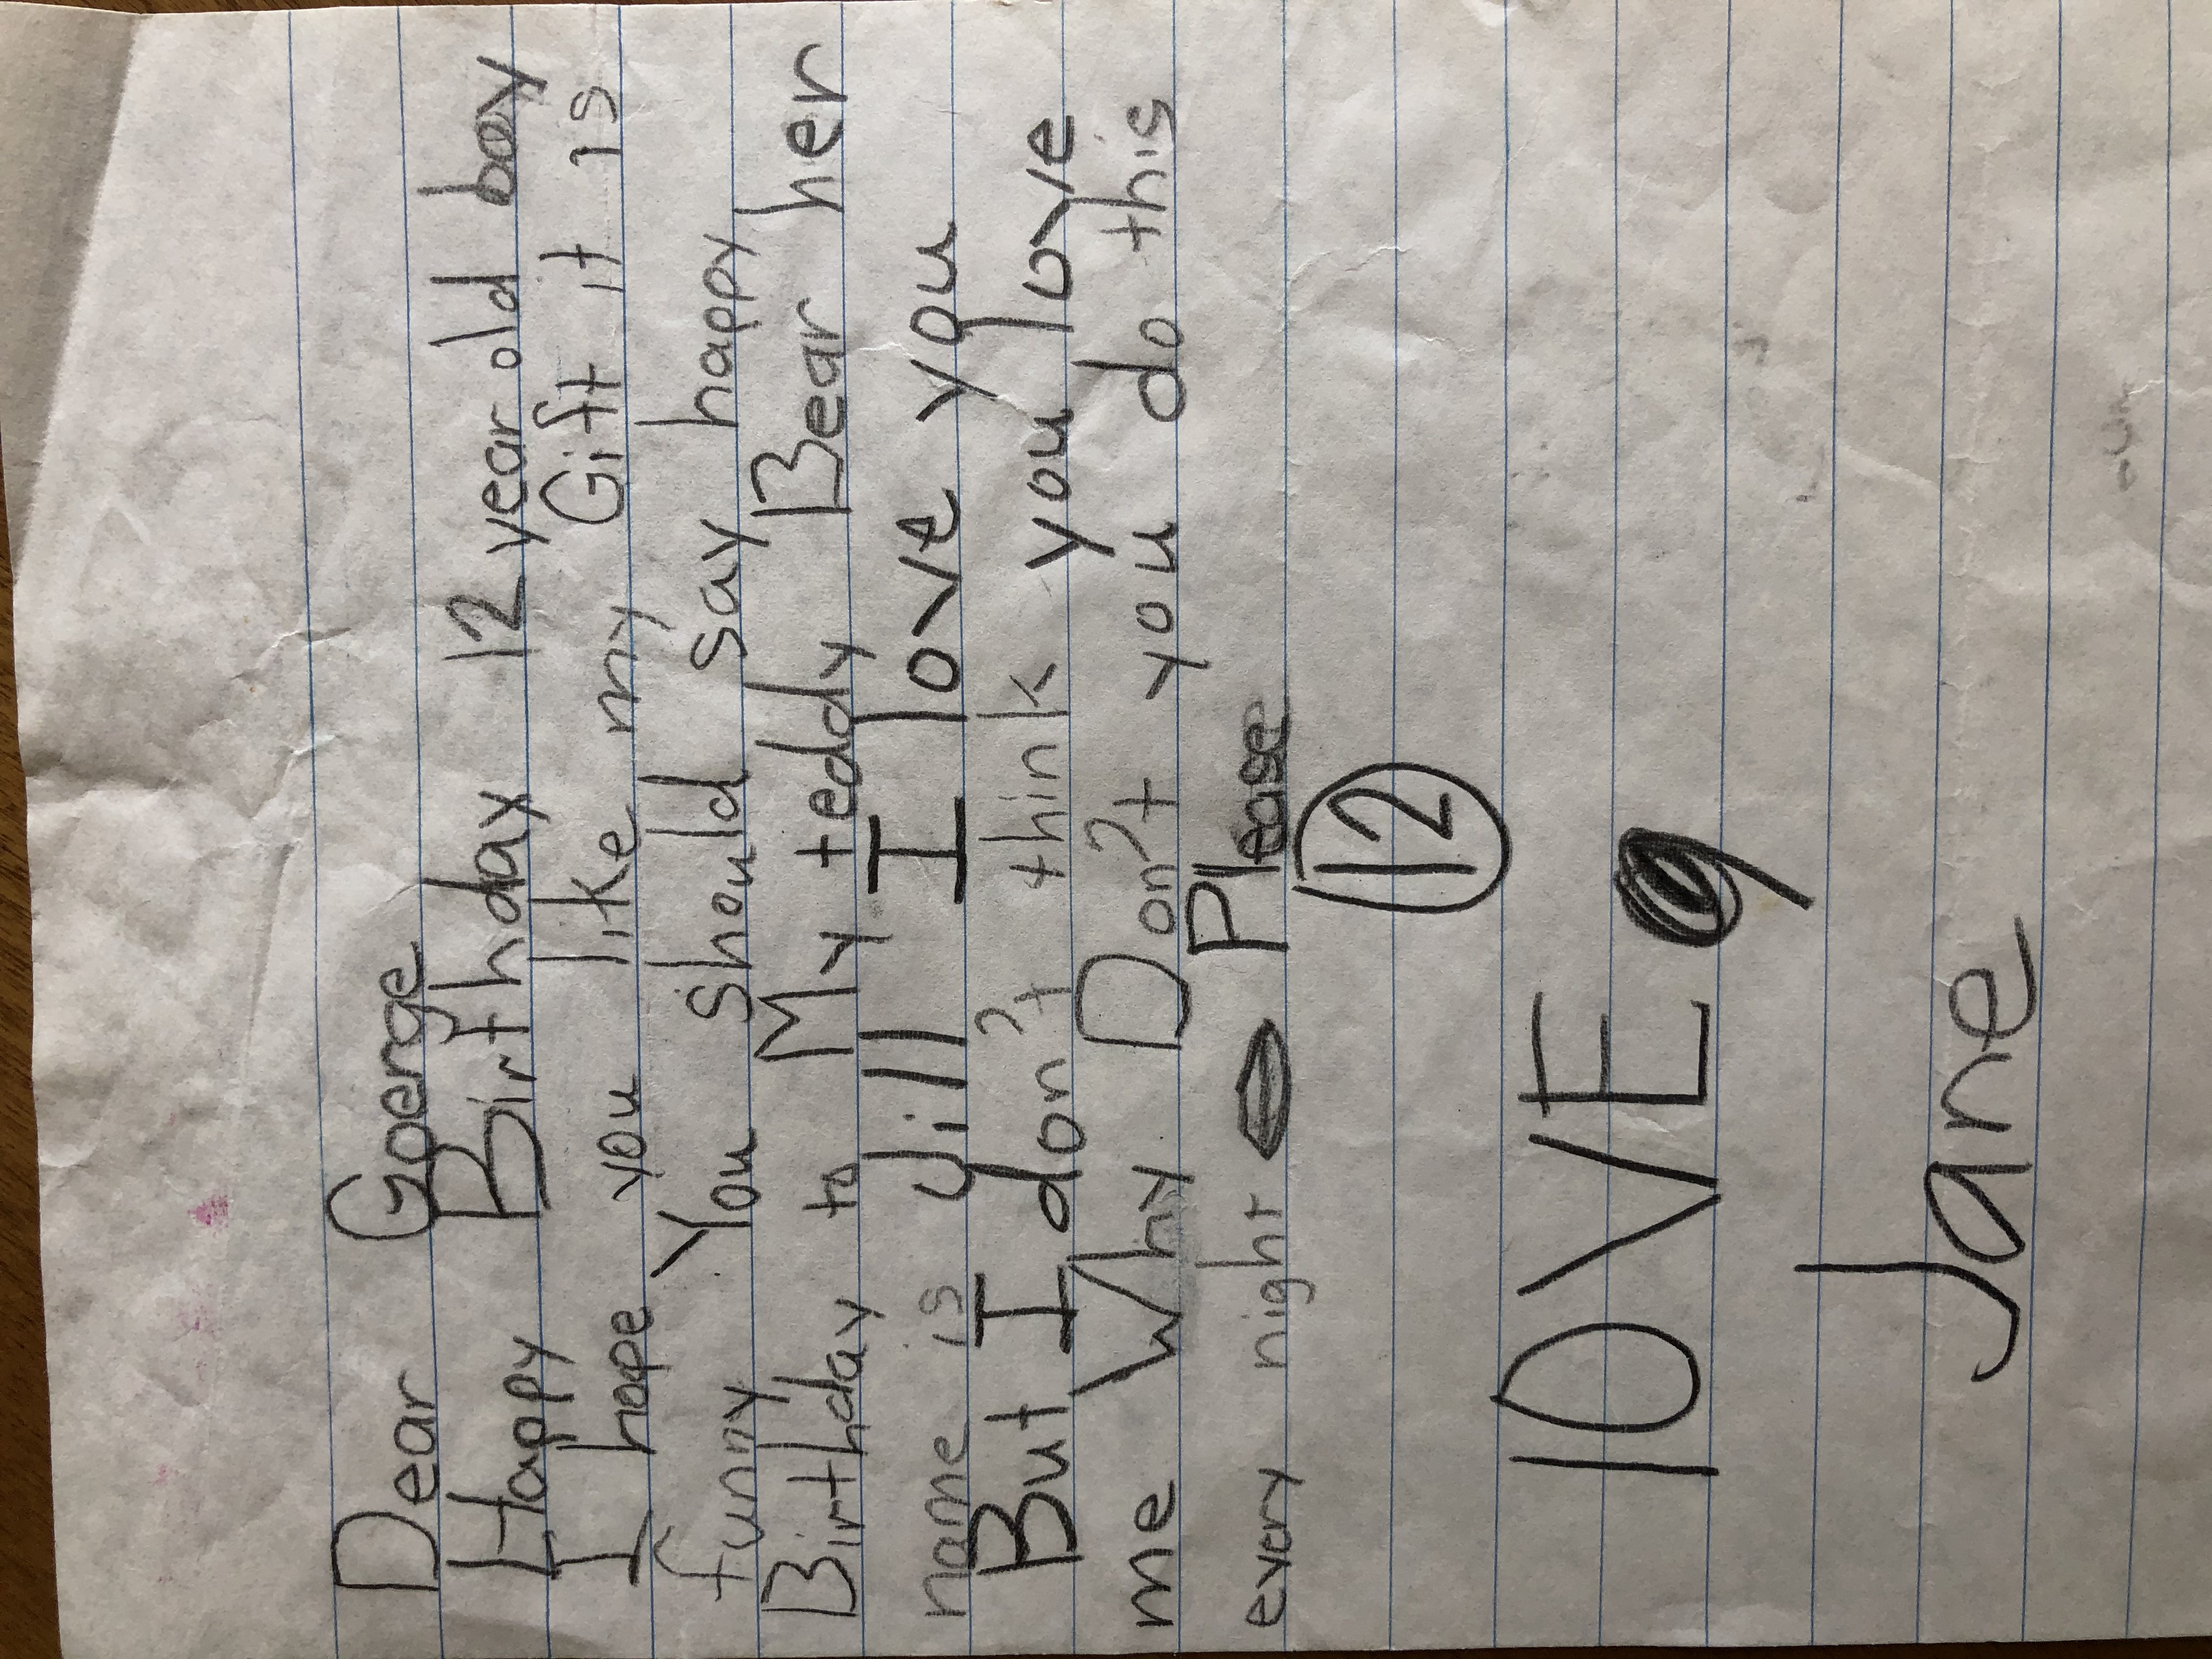 Dear Goerge
Happy Birthday 12 year old boy
I hope you like my Gift it is
funny You should say happy
Birthday to My teddy Bear her
name is Jill I love you
But I don't think you love
me Why Don't you do this
every night Please
12
lOVE,
Jane